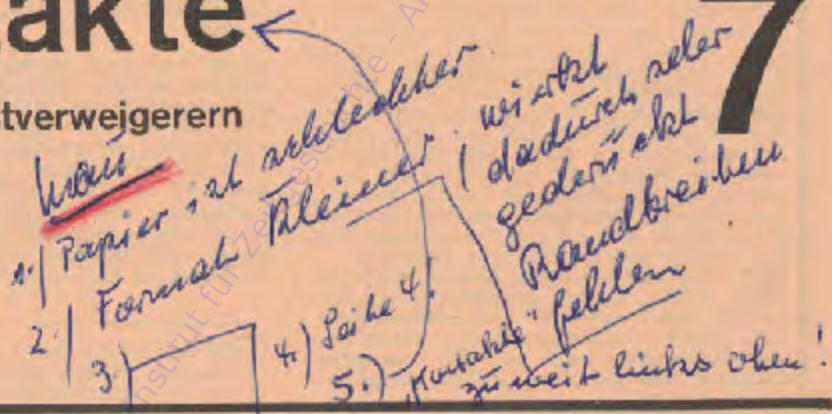 akte
7
tverweigerern
neu
1.) Papier ist schlechter
2.) Format kleiner, wirkt
dadurch sehr
gedrückt
Randbreiten
fehlen
3.)
4.) Seite 4!
5.) „Kontakte"
zu weit links oben!
Institut für Zeitgeschichte - Ar